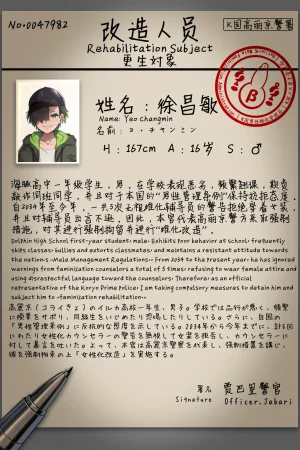 No.0047982
改造人员
K国高丽京警署
Rehabilitation Subject
更生対象
姓名：徐昌敏
Name: Yeo Changmin
名前：ヨ・チャンミン
H：167cm A：16岁 S：♂
海豚高中一年级学生，男。在学校表现恶劣，频繁翘课，欺负
敲诈同班同学，并且对于本国的“男性管理条例”保持抗拒态度。
自2034年至今年，一共5次无视雌化辅导员的警告拒绝穿着女装，
并且对辅导员出言不逊，因此，本官代表高丽京警方采取强制
措施，对其进行强制拘留并进行“雌化改造”。
Dolphin High School first-year student; male; Exhibits poor behavior at school; frequently
skips classes; bullies and extorts classmates; and maintains a resistant attitude towards
the nations «Male Management Regulations»; From 2034 to the present year; he has ignored
warnings from feminization counselors a total of 5 times; refusing to wear female attire and
using disrespectful language toward the counselors; Therefore; as an official
representative of the Koryo Prime Police; I am taking compulsory measures to detain him and
subject him to «feminization rehabilitation»;
高麗京（コライきょう）のイルカ高校一年生，男子。学校では品行が悪く、頻繁
に授業をサボり、同級生をいじめたり恐喝したりしている。さらに、自国の
「男性管理条例」に反抗的な態度を示している。2034年から今年までに、計5回
にわたり女性化カウンセラーの警告を無視して女装を拒否し、カウンセラーに
対して暴言を吐いた。よって、本官は高麗京警察を代表し、強制措置を講じ、
彼を強制拘束の上「女性化改造」を実施する。
署名
Signature
贾巴里警官
Officer.Jabari